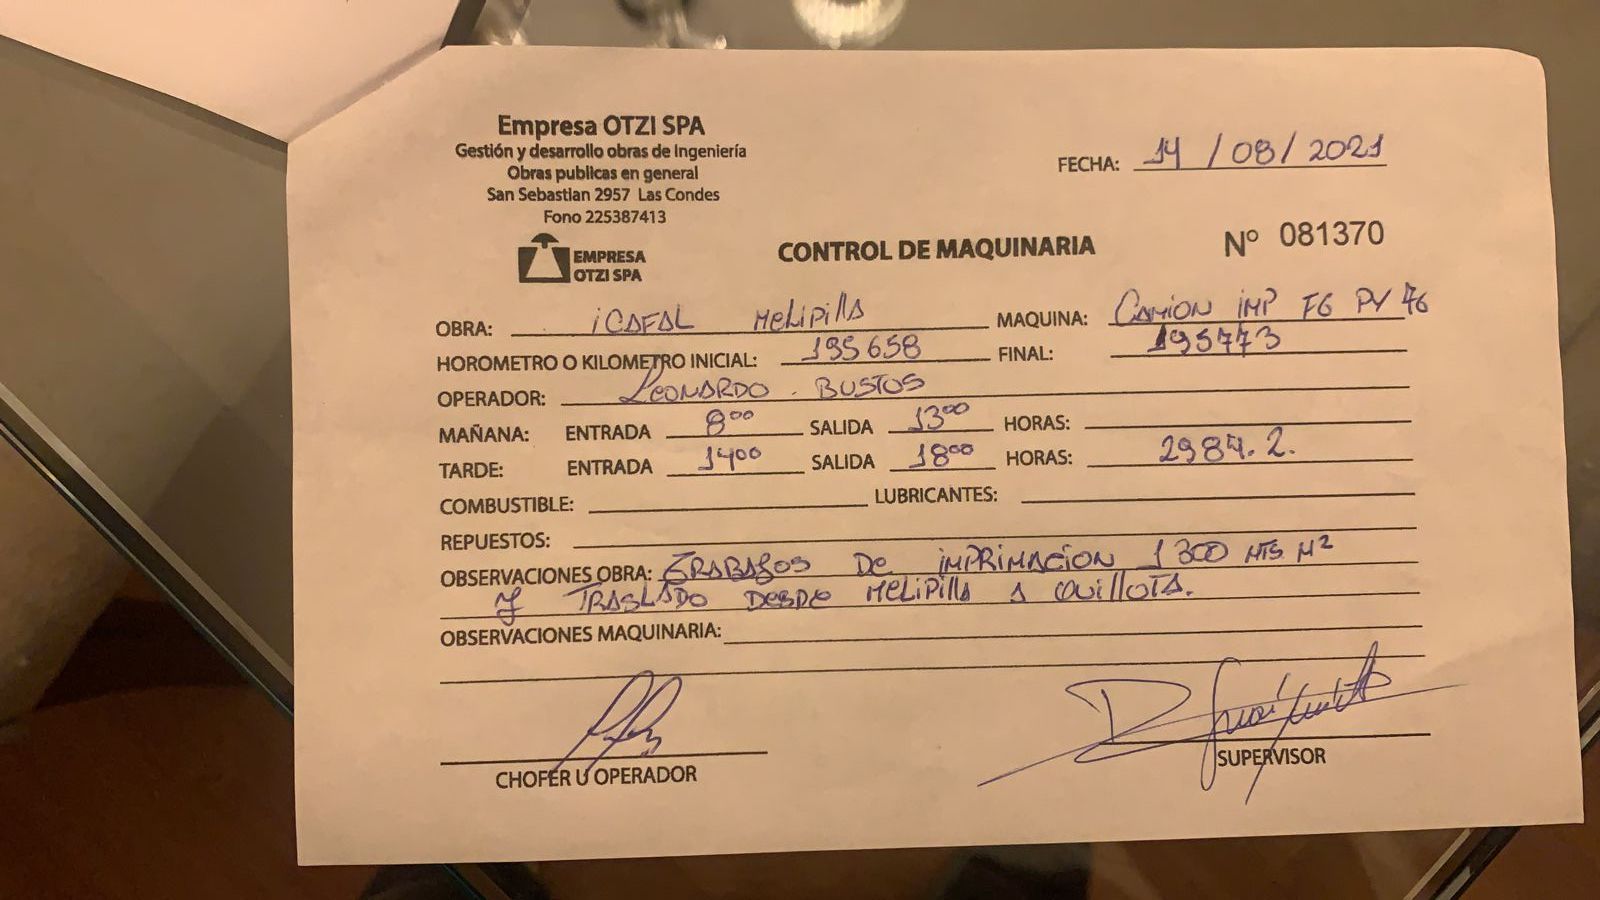 Empresa OTZI SPA
Gestión y desarrollo obras de Ingeniería
Obras publicas en general
San Sebastian 2957 Las Condes
Fono 225387413
EMPRESA
OTZI SPA
FECHA: 14 / 08 / 2021
CONTROL DE MAQUINARIA
Nº 081370
OBRA: iCAFAL MeLipillA MAQUINA: CAMION iMP FG PY 76
HOROMETRO O KILOMETRO INICIAL: 195658 FINAL: 195773
OPERADOR: LEONARDO . BUSTOS
MAÑANA: ENTRADA 8⁰⁰ SALIDA 13⁰⁰ HORAS:
TARDE: ENTRADA 14⁰⁰ SALIDA 18⁰⁰ HORAS: 2984.2.
COMBUSTIBLE: LUBRICANTES:
REPUESTOS:
OBSERVACIONES OBRA: TRABAJOS De iMPRiMACiON 1300 MTS M²
Y TRASLADO DESDe MeLipillA A QUillOTA.
OBSERVACIONES MAQUINARIA:
CHOFER U OPERADOR
SUPERVISOR